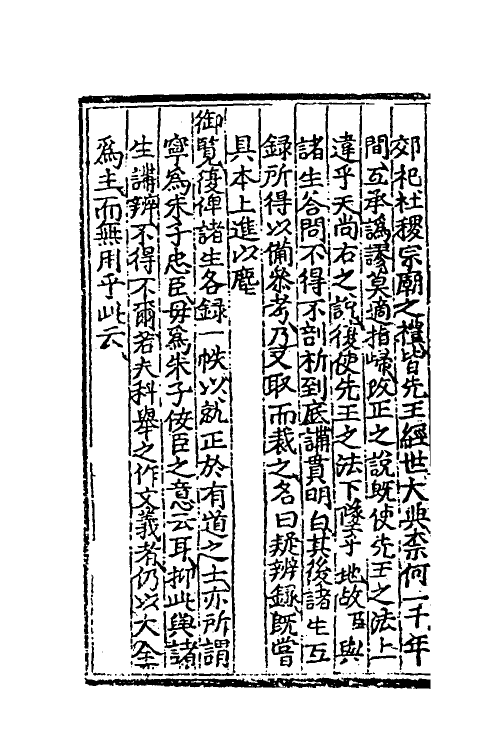 郊祀社稷宗廟之禮皆先王經世大典柰何一千年
間互承譌謬莫適指歸改正之說既使先王之法上
違乎天尚右之說復使先王之法下墜乎地故臣與
諸生答問不得不剖析到底講貫明白其後諸生互
録所得以備參考乃又取而裁之名曰疑辨録既嘗
具本上進以塵
御覧復俾諸生各録一帙以就正於有道之士亦所謂
寧爲朱子忠臣毋爲朱子佞臣之意云耳抑此與諸
生講辨不得不爾若夫科舉之作文義者仍以大全
爲主而無用乎此云